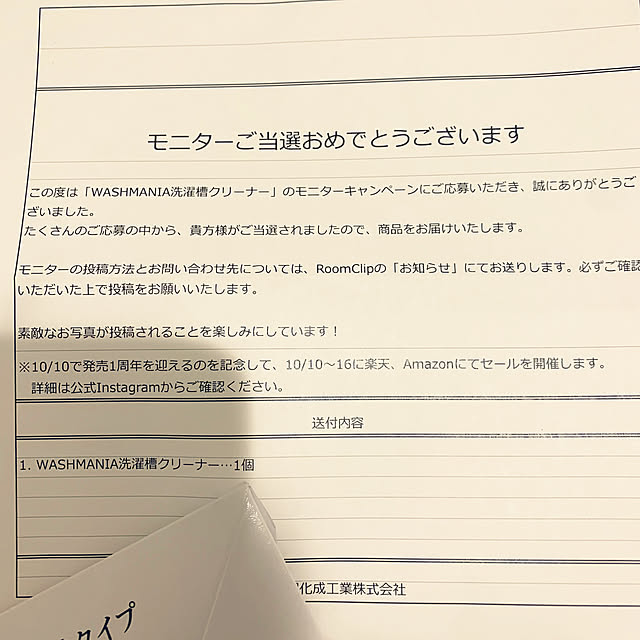 モニターご当選おめでとうございます
この度は「WASHMANIA洗濯槽クリーナー」のモニターキャンペーンにご応募いただき、誠にありがとうご
ざいました。
たくさんのご応募の中から、貴方様がご当選されましたので、商品をお届けいたします。
モニターの投稿方法とお問い合わせ先については、RoomClipの「お知らせ」にてお送りします。必ずご確認
いただいた上で投稿をお願いいたします。
素敵なお写真が投稿されることを楽しみにしています！
※10/10で発売1周年を迎えるのを記念して、10/10～16に楽天、Amazonにてセールを開催します。
詳細は公式Instagramからご確認ください。
送付内容
1. WASHMANIA洗濯槽クリーナー…1個
化成工業株式会社
タイプ